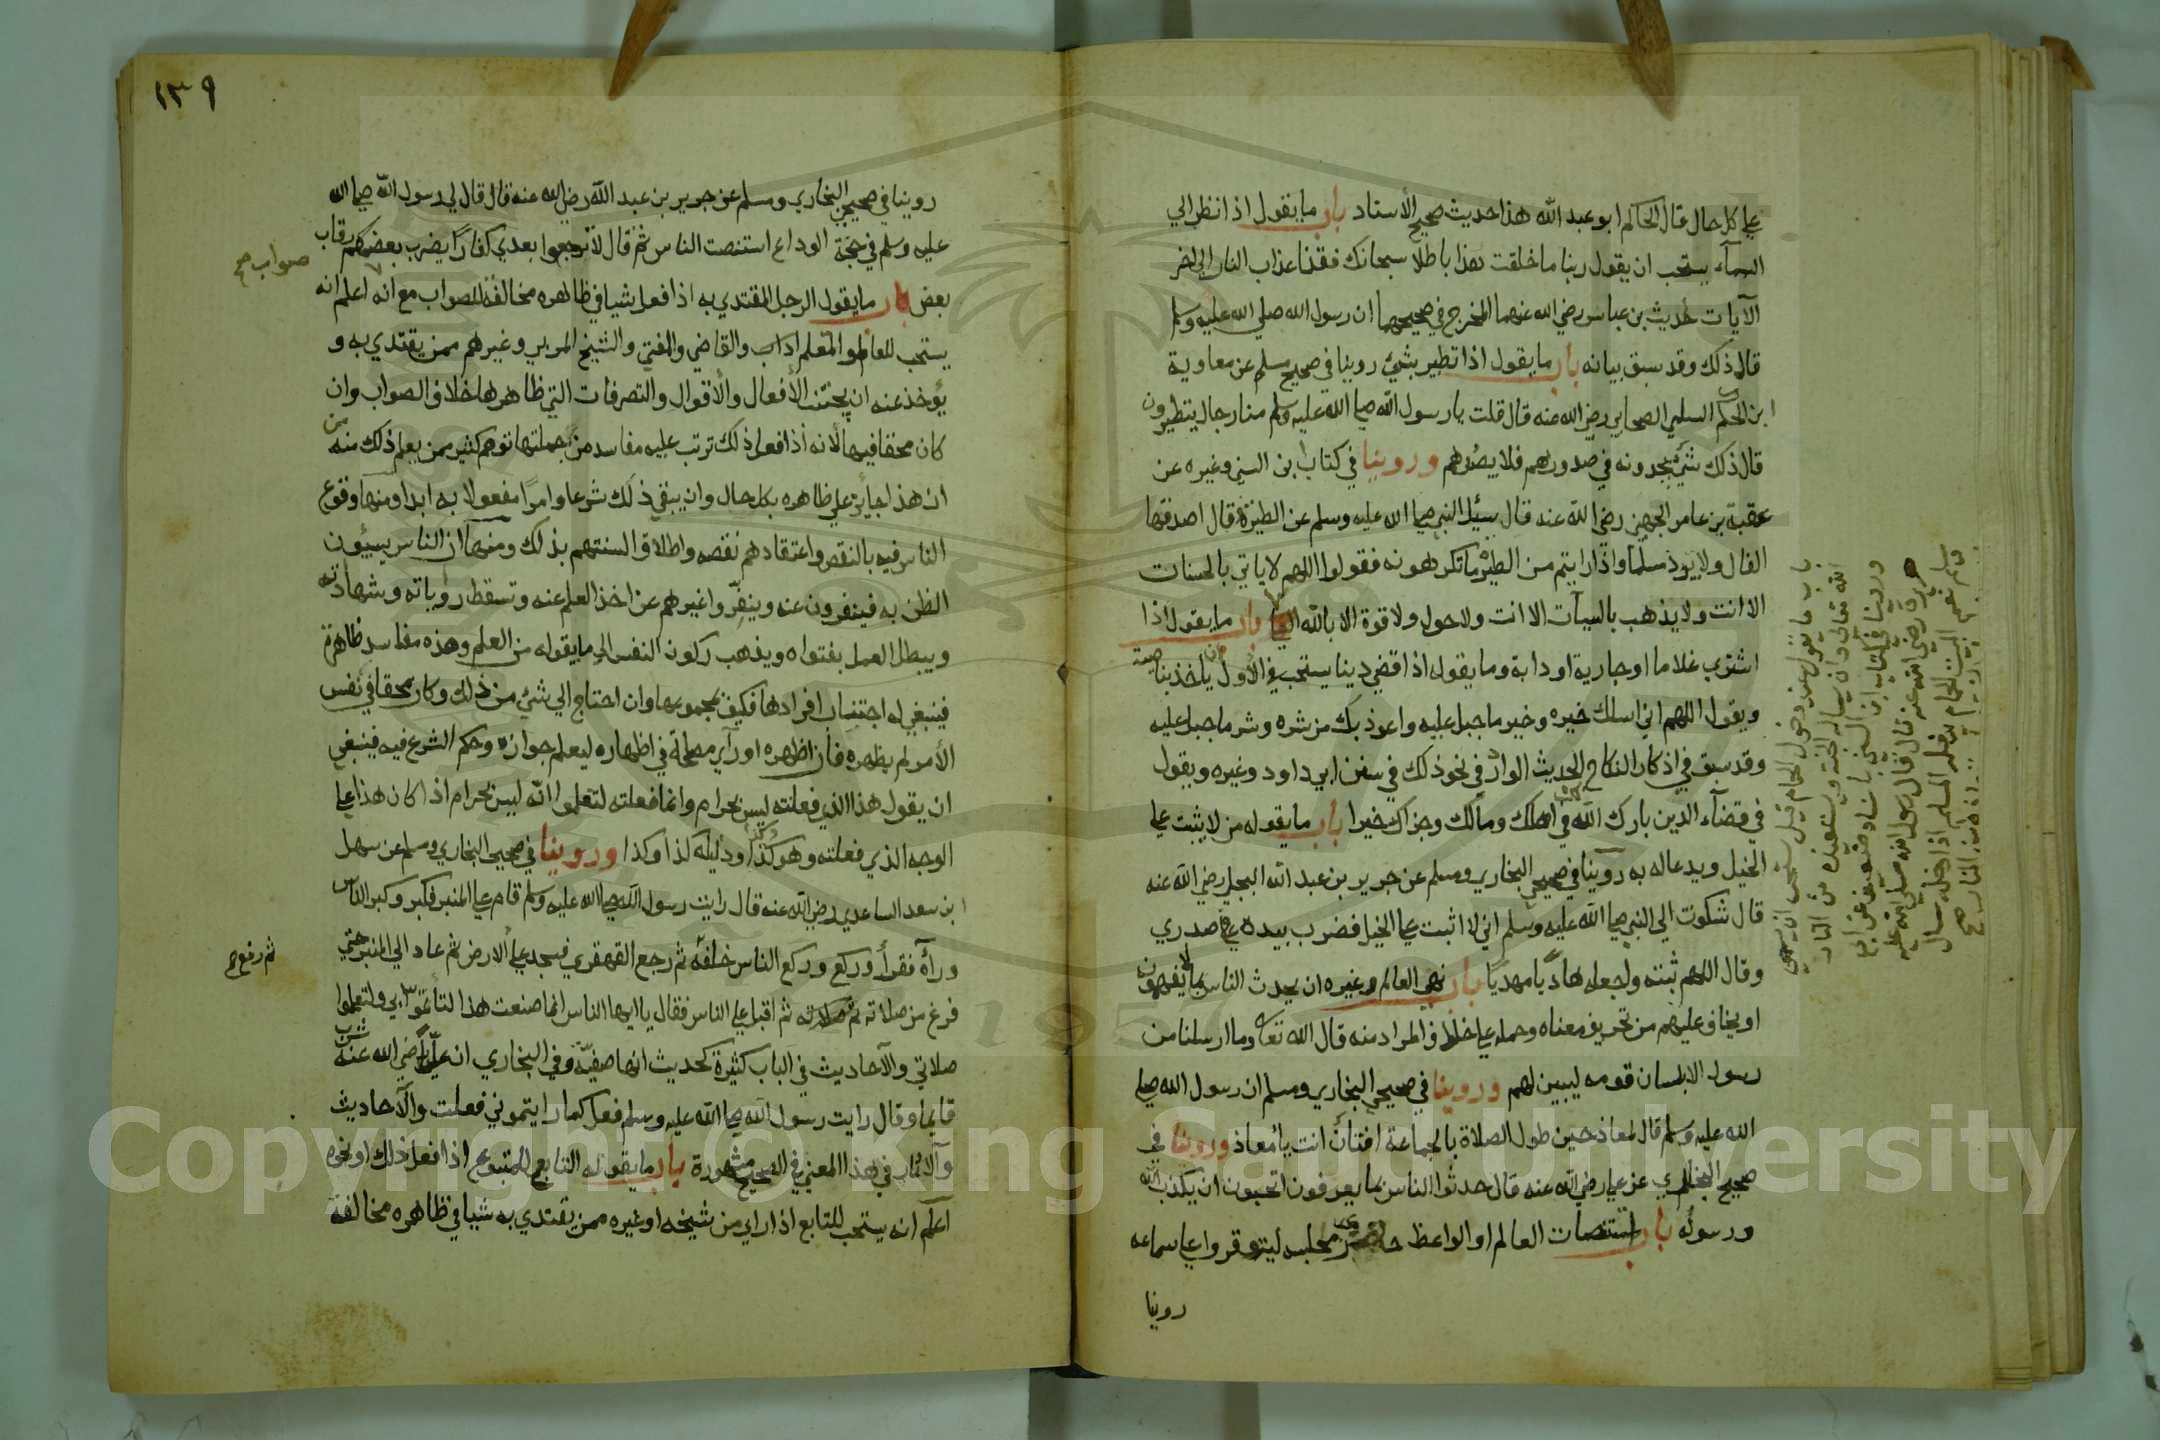 علي كل حال قال الحاكم ابو عبد الله هذا حديث صحيح الأسناد باب ما يقول اذا نظر الي
السمآء يستحب ان يقول ربنا ما خلقت هذا باطلا سبحانك فقنا عذاب النار الي اخر
الآيات لحديث بن عباس رضي الله عنهما المخرج في صحيحهما ان رسول الله صلي الله عليه وسلم
قال ذلك وقد سبق بيانه باب ما يقول اذا تطير بشئ روينا في صحيح مسلم عن معاوية
ابن الحكم السلمي الصحابي رضي الله عنه قال قلت يا رسول الله صلي الله عليه وسلم منا رجال يتطيرون
قال ذلك شئ يجدونه في صدورهم فلا يصدهم وروينا في كتاب ابن السني وغيره عن
عقبة بن عامر الجهني رضي الله عنه قال سئل النبي صلي الله عليه وسلم عن الطيرة قال اصدقها
الفال ولا يرد مسلما واذا رايتم من الطيرة ما تكرهونه فقولوا اللهم لا ياتي بالحسنات
الا انت ولا يذهب بالسيآت الا انت ولا حول ولا قوة الا بالله باب ما يقول اذا
اشتري غلاما او جارية او دابة وما يقول اذا قضي دينا يستحب في الأول ان ياخذ بناصيته
ويقول اللهم اني اسالك خيره وخير ما جبل عليه واعوذ بك من شره وشر ما جبل عليه
وقد سبق في اذكار النكاح الحديث الوارد في نحو ذلك في سنن ابي داود وغيره ويقول
في قضآء الدين بارك الله في اهلك ومالك وجزاك خيرا باب ما يقوله من لا يثبت علي
الخيل ويدعا له به روينا في صحيحي البخاري ومسلم عن جرير بن عبد الله البجلي رضي الله عنه
قال شكوت الي النبي صلي الله عليه وسلم اني لا اثبت علي الخيل فضرب بيده في صدري
وقال اللهم ثبته واجعله هاديا مهديا باب نهي العالم وغيره ان يحدث الناس بما لا يفهمون
او يخاف عليهم من تحريف معناه وحمله علي خلاف المراد منه قال الله تعالي وما ارسلنا من
رسول الا بلسان قومه ليبين لهم وروينا في صحيحي البخاري ومسلم ان رسول الله صلي
الله عليه وسلم قال لمعاذ حين طول الصلاة بالجماعة افتان انت يا معاذ وروينا في
صحيح البخاري عن علي رضي الله عنه قال حدثوا الناس بما يعرفون اتحبون ان يكذب الله
ورسوله باب استنصات العالم او الواعظ حاضري مجلسه ليتوفروا علي سماعه
روينا
باب ما يقول عند دخول الحمام قيل يستحب ان يسمي
الله تعالي وان يساله الجنة ويستعيذه من النار
وروينا في كتاب ابن السني باسناد ضعيف عن ابي
هريرة رضي الله عنه قال قال رسول الله صلي الله عليه
وسلم نعم البيت الحمام يدخله المسلم اذا دخله سال
١٣٩
روينا في صحيحي البخاري ومسلم عن جرير بن عبد الله رضي الله عنه قال قال لي رسول الله صلي الله
عليه وسلم في حجة الوداع استنصت الناس ثم قال لا ترجعوا بعدي كفارا يضرب بعضكم رقاب
صواب صح
بعض باب ما يقول الرجل المقتدي به اذا فعل شيا في ظاهره مخالفة للصواب مع انه اعلم انه
يستحب للعالم والمعلم اداب والقاضي والمفتي والشيخ المربي وغيرهم ممن يقتدي به و
يؤخذ عنه ان يجتنب الأفعال والأقوال والتصرفات التي ظاهرها خلاف الصواب وان
كان محقا فيها لانه اذا فعل ذلك ترتب عليه مفاسد من جملتها توهم كثير ممن يعلم ذلك منه
ان هذا جائز علي ظاهره بكل حال وان يبقي ذلك شرعا وامرا مفعولا به ابدا ومنها وقوع
الناس فيه بالنقص واعتقادهم نقصه واطلاق السنتهم بذلك ومنها ان الناس يسيؤن
الظن به فينفرون عنه وينفروا غيرهم عن اخذ العلم عنه وتسقط رواياته وشهادته
ويبطل العمل بفتواه ويذهب ركون النفس الي ما يقوله من العلم وهذه مفاسد ظاهرة
فينبغي له اجتناب افرادها فكيف بمجموعها وان احتاج الي شئ من ذلك وكان محقا في نفس
الأمر لم يظهره فان اظهره او رآي مصلحة في اظهاره ليعلم جوازه وحكم الشرع فيه فينبغي
ان يقول هذا الذي فعلته ليس بحرام وانما فعلته لتعلموا انه ليس بحرام اذا كان هذا علي
الوجه الذي فعلته وهو كذا وكذا ودليله كذا وكذا وروينا في صحيحي البخاري ومسلم عن سهل
ابن سعد الساعدي رضي الله عنه قال رايت رسول الله صلي الله عليه وسلم قام علي المنبر فكبر وكبر الناس
ورآه فقرأ وركع وركع الناس خلفه ثم رجع القهقري فسجد علي الأرض ثم عاد الي المنبر حتي
ثم رفع صح
فرغ من صلاته ثم اقبل علي الناس فقال يا ايها الناس انما صنعت هذا لتأتموا بي ولتعلموا
صلاتي والآحاديث في الباب كثيرة كحديث انها صفية وفي البخاري ان عليا رضي الله عنه شرب
قايما وقال رايت رسول الله صلي الله عليه وسلم فعل كما رايتموني فعلت والآحاديث
والآثار في هذا المعني في الصحيح مشهورة باب ما يقوله التابع للمتبوع اذا فعل ذلك او نحوه
اعلم انه يستحب للتابع اذا راي من شيخه او غيره ممن يقتدي به شيا في ظاهره مخالفة
Copyright © King Saud University
1957